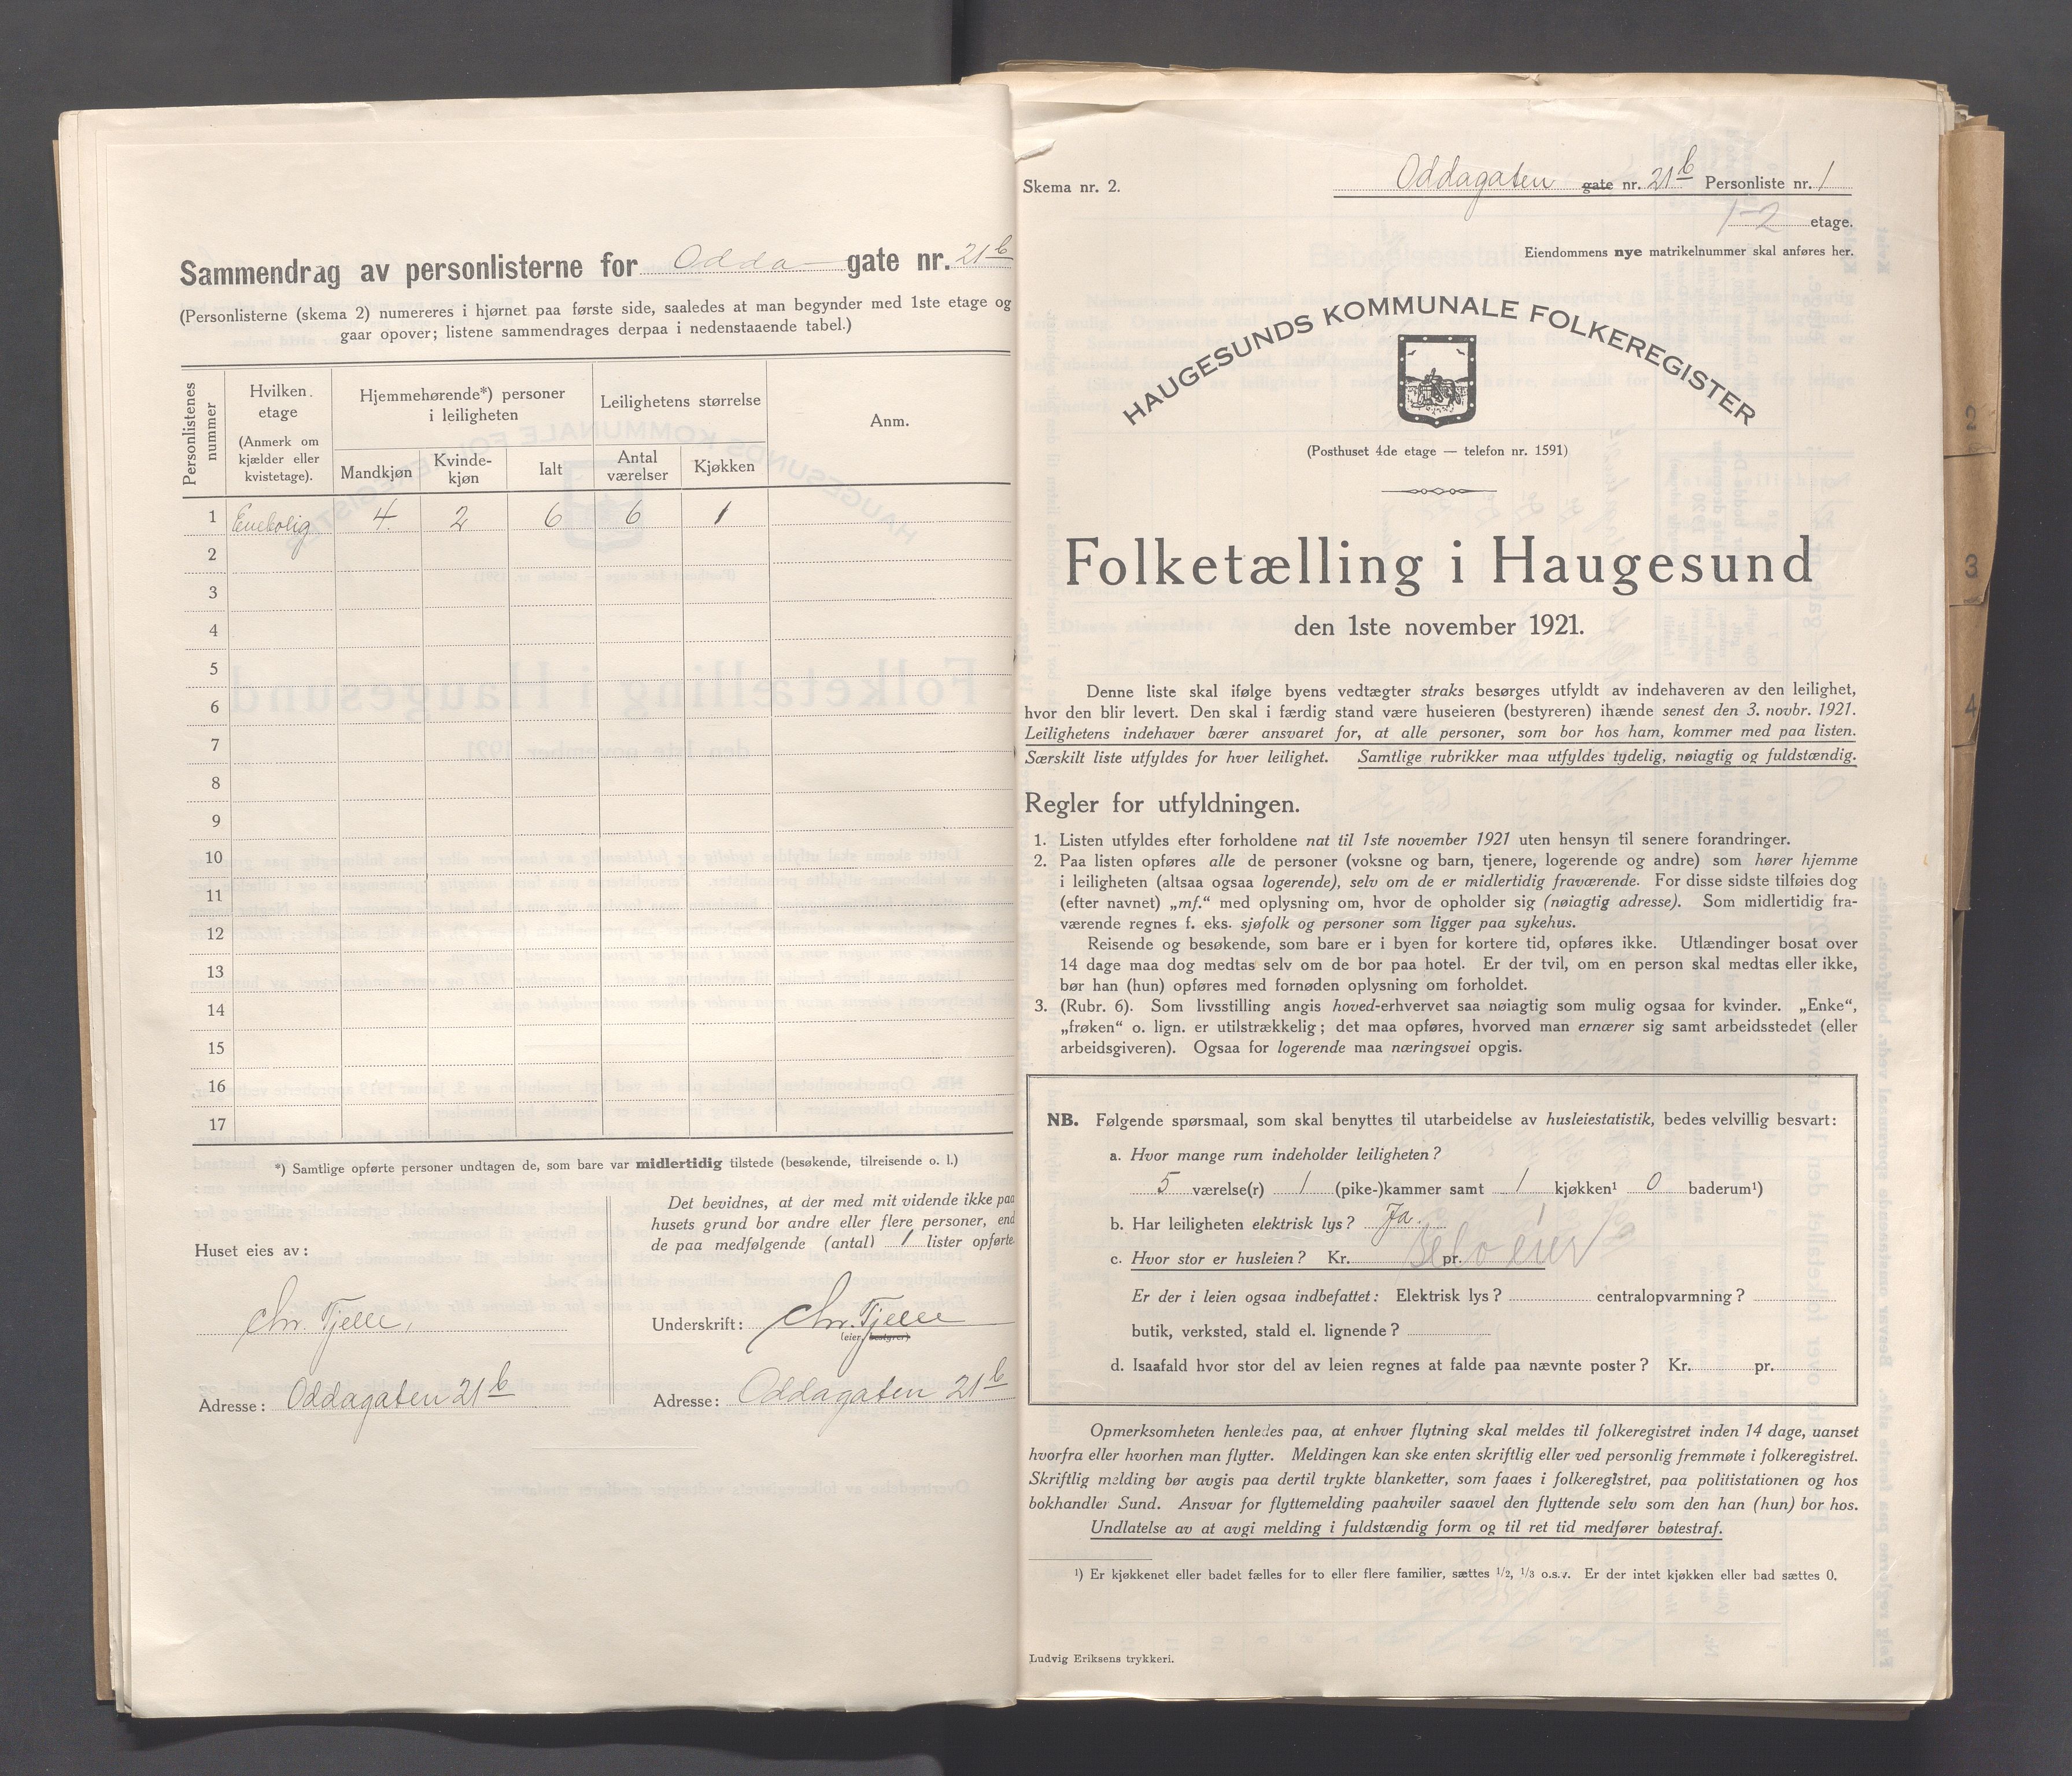 Sammendrag av personlisterne for Odda gate nr. 21b
(Personlisterne (skema 2) numereres i hjørnet paa første side, saaledes at man begynder med 1ste etage og
gaar opover; listene sammendrages derpaa i nedenstaaende tabel.)
Personlistenes nummer
Hvilken etage
(Anmerk om kjælder eller kvistetage).
Hjemmehørende*) personer i leiligheten
Mandkjøn
Kvinde-kjøn
Ialt
Leilighetens størrelse
Antal værelser
Kjøkken
Anm.
1 Enebolig 4. 2 6 6 1
2
3
4
5
6
7
8
9
10
11
12
13
14
15
16
17
*) Samtlige opførte personer undtagen de, som bare var midlertidig tilstede (besøkende, tilreisende o. l.)
Huset eies av:
Chr. Tjelle,
Adresse: Oddagaten 21b
Det bevidnes, at der med mit vidende ikke paa
husets grund bor andre eller flere personer, end
de paa medfølgende (antal) 1 lister opførte.
Underskrift: Chr. Tjelle
(eier, bestyrer)
Adresse: Oddagaten 21b
Skema nr. 2.
Oddagaten gate nr. 21b Personliste nr. 1
1-2 etage.
Eiendommens nye matrikelnummer skal anføres her.
HAUGESUNDS KOMMUNALE FOLKEREGISTER
(Posthuset 4de etage — telefon nr. 1591)
Folketælling i Haugesund
den 1ste november 1921.
Denne liste skal ifølge byens vedtægter straks besørges utfyldt av indehaveren av den leilighet,
hvor den blir levert. Den skal i færdig stand være huseieren (bestyreren) ihænde senest den 3. novbr. 1921.
Leilighetens indehaver bærer ansvaret for, at alle personer, som bor hos ham, kommer med paa listen.
Særskilt liste utfyldes for hver leilighet. Samtlige rubrikker maa utfyldes tydelig, nøiagtig og fuldstændig.
Regler for utfyldningen.
1. Listen utfyldes efter forholdene nat til 1ste november 1921 uten hensyn til senere forandringer.
2. Paa listen opføres alle de personer (voksne og barn, tjenere, logerende og andre) som hører hjemme
i leiligheten (altsaa ogsaa logerende), selv om de er midlertidig fraværende. For disse sidste tilføies dog
(efter navnet) „mf.“ med oplysning om, hvor de opholder sig (nøiagtig adresse). Som midlertidig fra-
værende regnes f. eks. sjøfolk og personer som ligger paa sykehus.
Reisende og besøkende, som bare er i byen for kortere tid, opføres ikke. Utlændinger bosat over
14 dage maa dog medtas selv om de bor paa hotel. Er der tvil, om en person skal medtas eller ikke,
bør han (hun) opføres med fornøden oplysning om forholdet.
3. (Rubr. 6). Som livsstilling angis hoved-erhvervet saa nøiagtig som mulig ogsaa for kvinder. „Enke“,
„frøken“ o. lign. er utilstrækkelig; det maa opføres, hvorved man ernærer sig samt arbeidsstedet (eller
arbeidsgiveren). Ogsaa for logerende maa næringsvei opgis.
NB. Følgende spørsmaal, som skal benyttes til utarbeidelse av husleiestatistik, bedes velvillig besvart:
a. Hvor mange rum indeholder leiligheten?
5 værelse(r) 1 (pike-)kammer samt 1 kjøkken¹ 0 baderum¹)
b. Har leiligheten elektrisk lys? Ja.
c. Hvor stor er husleien? Kr. pr.
Er der i leien ogsaa indbefattet: Elektrisk lys? centralopvarmning?
butik, verksted, stald el. lignende?
d. Isaafald hvor stor del av leien regnes at falde paa nævnte poster? Kr. pr.
Opmerksomheten henledes paa, at enhver flytning skal meldes til folkeregistret inden 14 dage, uanset
hvorfra eller hvorhen man flytter. Meldingen kan ske enten skriftlig eller ved personlig fremmøte i folkeregistret.
Skriftlig melding bør avgis paa dertil trykte blanketter, som faaes i folkeregistret, paa politistationen og hos
bokhandler Sund. Ansvar for flyttemelding paahviler saavel den flyttende selv som den han (hun) bor hos.
Undlatelse av at avgi melding i fuldstændig form og til ret tid medfører bøtestraf.
¹) Er kjøkkenet eller badet fælles for to eller flere familier, sættes 1/2, 1/3 o.s.v. Er der intet kjøkken eller bad sættes 0.
Ludvig Eriksens trykkeri.
2
3
4